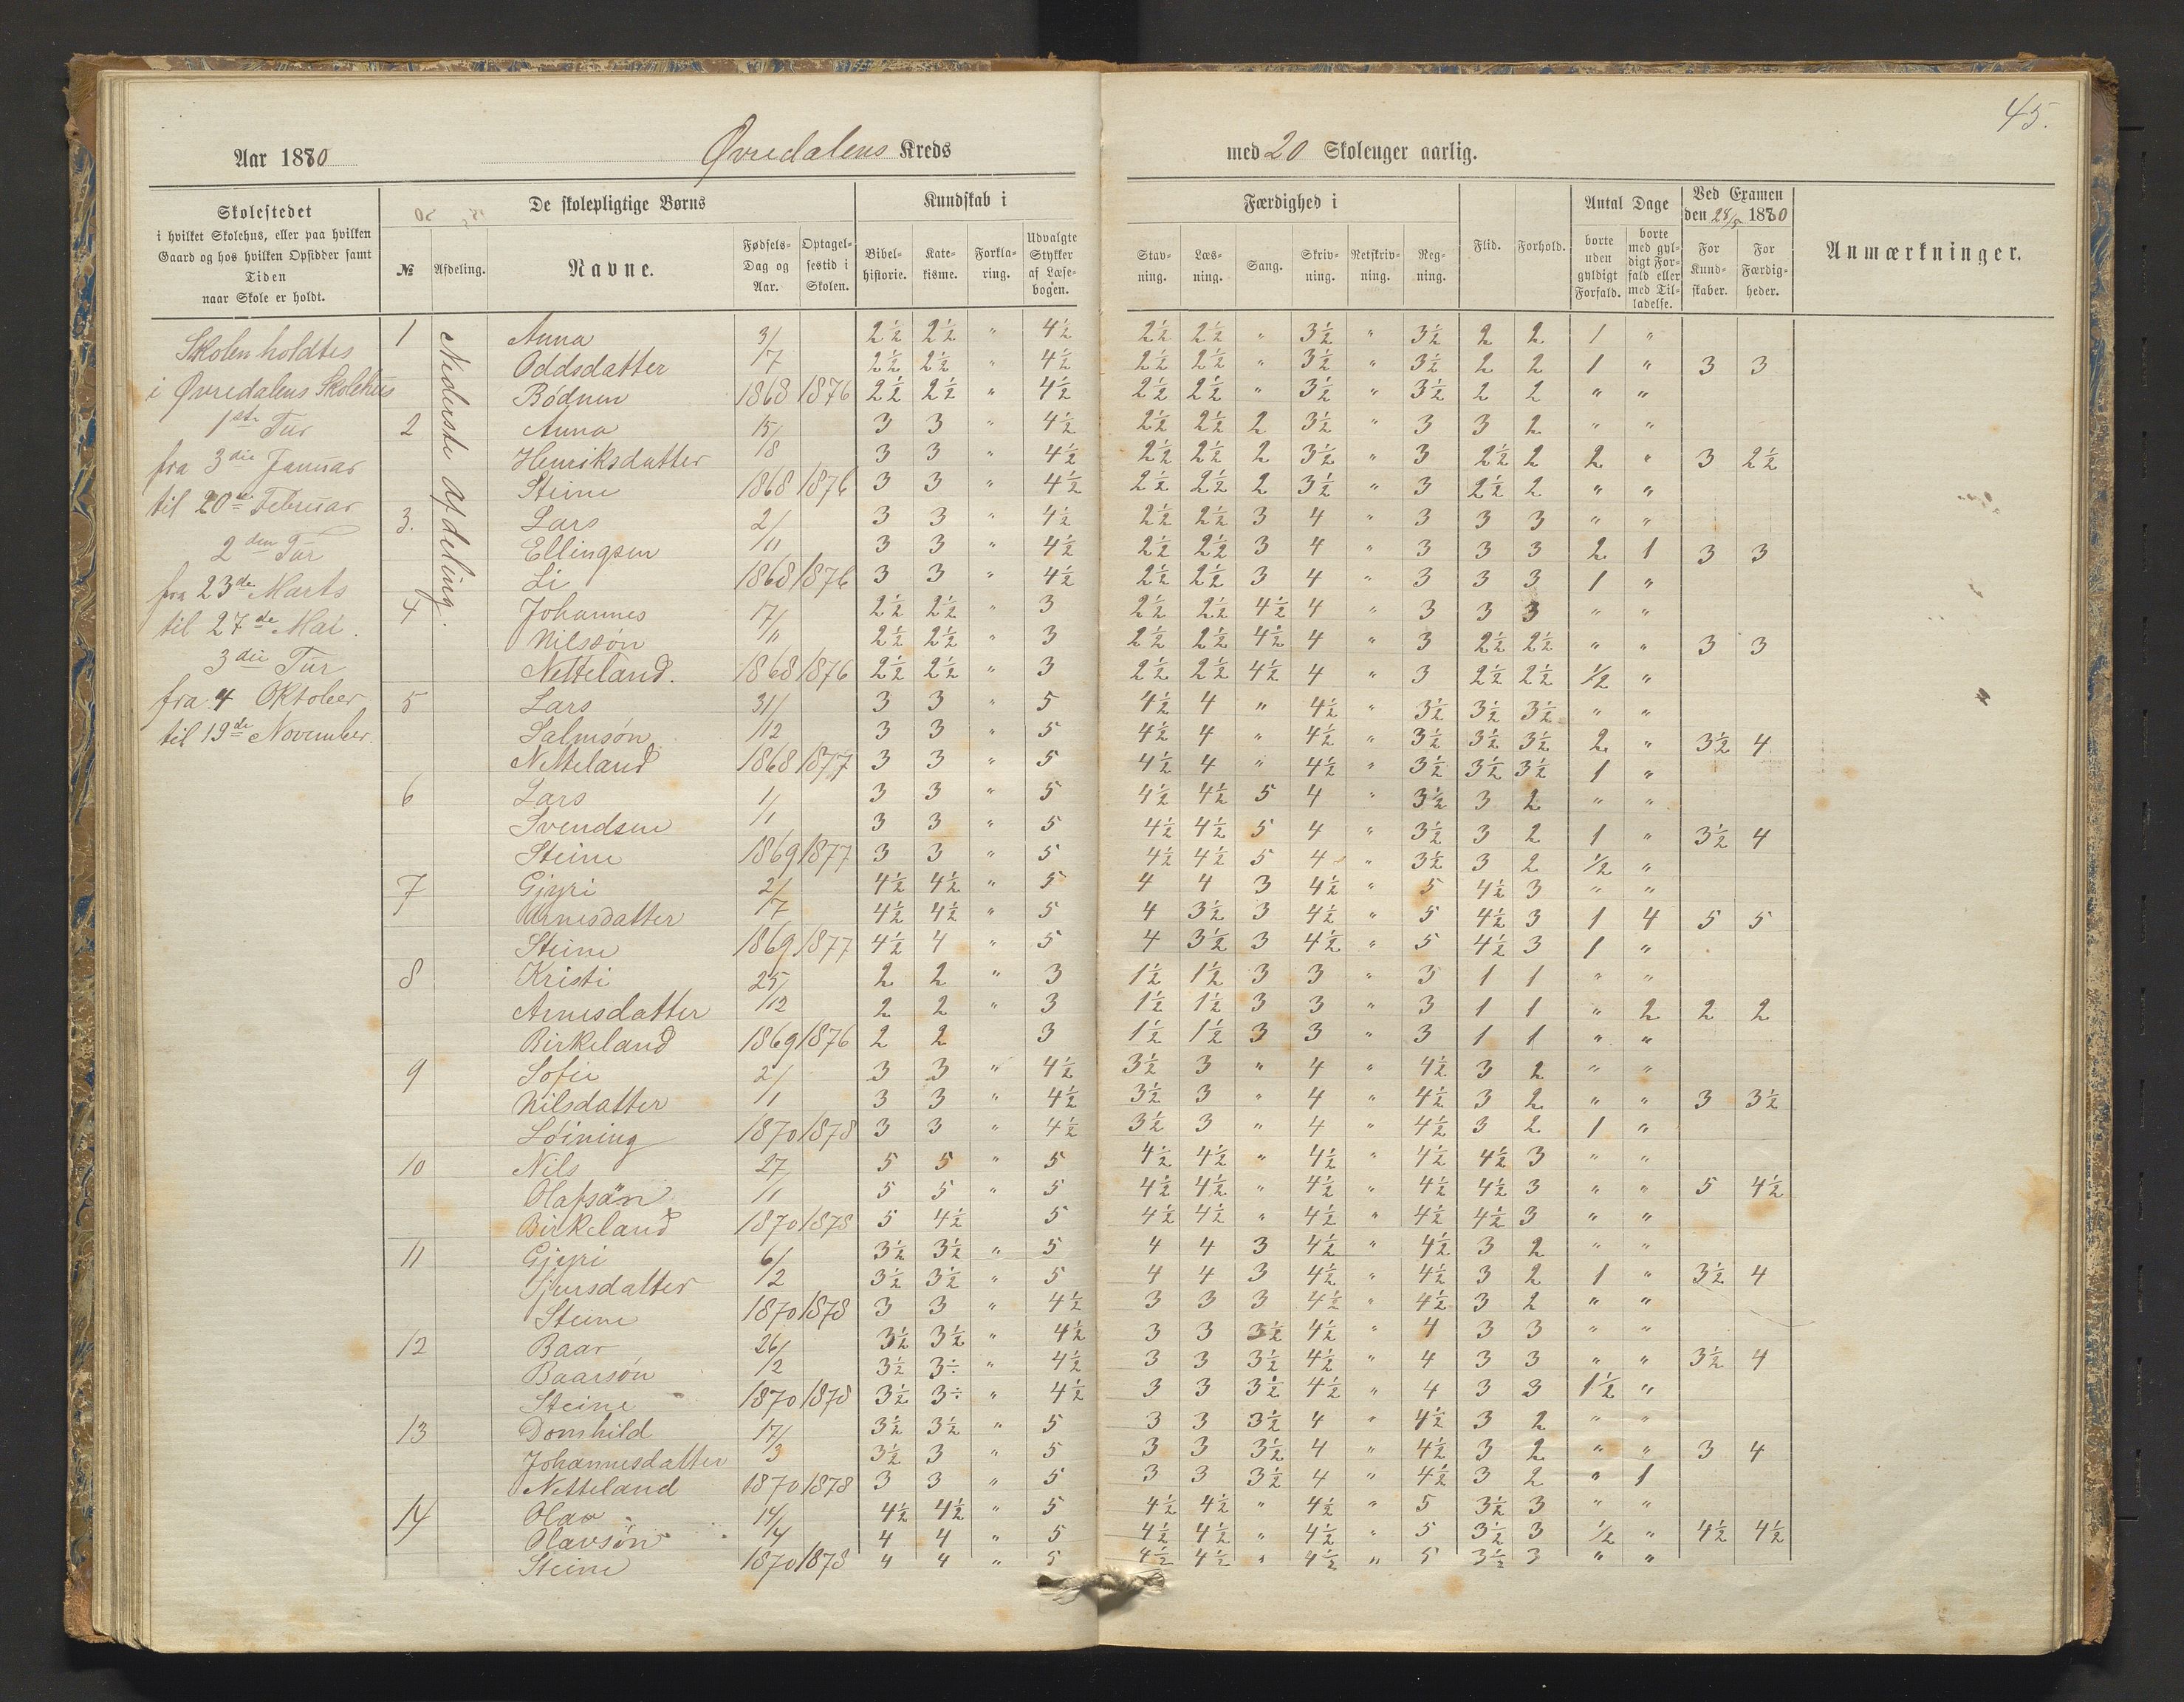 45.
Aar 1880 Øvredalens Kreds med 20 Skoleuger aarlig.
Skolestedet
i hvilket Skolehus, eller paa hvilken
Gaard og hos hvilken Opsidder samt
Tiden
naar Skole er holdt.
De skolepligtige Børns
№ Afdeling. Navne. Fødsels-Dag og Aar. Optagelsestid i Skolen.
Kundskab i
Bibelhistorie. Katekisme. Forklaring. Udvalgte Stykker af Læsebogen.
Færdighed i
Stavning. Læsning. Sang. Skrivning. Retskrivning. Regning.
Flid. Forhold.
Antal Dage
borte uden gyldigt Forfald. borte med gyldigt Forfald eller med Tilladelse.
Ved Examen
den 28/5 1880
For Kundskaber. For Færdigheder.
Anmærkninger.
Skolen holdtes
i Øvredalens Skolehus
1ste Tur
fra 3die Januar
til 20de Februar
2den Tur
fra 23de Marts
til 27de Mai.
3die Tur
fra 4 Oktober
til 19de November.
Nederste Afdeling.
1 Anna 3/ 2½ 2½ " 4½ 2½ 2½ " 3½ " 3½ 2 2 1 "
Oddsdatter /7 2½ 2½ " 4½ 2½ 2½ " 3½ " 3½ 2 2 1 " 3 3
Bödnen 1868 1876 2½ 2½ " 4½ 2½ 2½ " 3½ " 3½ 2 2 " "
2 Anna 15/ 3 3 " 4½ 2½ 2½ 2 3½ " 3 3 2 " "
Henriksdatter /8 3 3 " 4½ 2½ 2½ 2 3½ " 3 2½ 2 2 " 3 2½
Steine 1868 1876 3 3 " 4½ 2½ 2½ 2 3½ " 3 2½ 2 " "
3. Lars 2/ 3 3 " 4½ 2½ 2½ 3 4 " 3 3 3 " "
Ellingsen /11 3 3 " 4½ 2½ 2½ 3 4 " 3 3 3 2 1 3 3
Li 1868 1876 3 3 " 4½ 2½ 2½ 3 4 " 3 3 3 1 "
4 Johannes 17/ 2½ 2½ " 3 2½ 2½ 4½ 4 " 3 3 3 " "
Nilssön /11 2½ 2½ " 3 2½ 2½ 4½ 4 " 3 2½ 2½ " " 3 3
Netteland. 1868 1876 2½ 2½ " 3 2½ 2½ 4½ 4 " 3 2½ 2½ ½ "
5 Lars 31/ 3 3 " 5 4½ 4 " 4½ " 3½ 3½ 3½ " "
Salmsön /12 3 3 " 5 4½ 4 " 4½ " 3½ 3½ 3½ 2 " 3½ 4
Netteland 1868 1877 3 3 " 5 4½ 4 " 4½ " 3½ 3½ 3½ 1 "
6 Lars 1/ 3 3 " 5 4½ 4½ 5 4 " 3½ 3 2 " "
Svendsen /1 3 3 " 5 4½ 4½ 5 4 " 3½ 3 2 1 " 3½ 4
Steine 1869 1877 3 3 " 5 4½ 4½ 5 4 " 3½ 3 2 ½ "
7 Gjyri 2/ 4½ 4½ " 5 4 4 3 4½ " 5 4½ 3 " "
Arnesdatter /7 4½ 4½ " 5 4 3½ 3 4½ " 5 4½ 3 1 4 5 5
Steine 1869 1877 4½ 4 " 5 4 3½ 3 4½ " 5 4½ 3 1 "
8 Kristi 25/ 2 2 " 3 1½ 1½ 3 3 " 3 1 1 " "
Arnesdatter /12 2 2 " 3 1½ 1½ 3 3 " 3 1 1 " 2 2 2
Birkeland 1869 1876 2 2 3 1½ 1½ 3 3 " 3 1 1 " "
9 Sofie 2/ 3 3 " 4½ 3½ 3 " 4 " 4½ 3 2 " "
Nilsdatter /1 3 3 " 4½ 3½ 3 " 4 " 4½ 3 2 " " 3 3½
Löining 1870 1878 3 3 " 4½ 3½ 3 " 4 " 4½ 3 2 1 "
10 Nils 27/ 5 5 " 5 4½ 4½ " 4½ " 4½ 4½ 3 " "
Olafsön /1 5 5 " 5 4½ 4½ " 4½ " 4½ 4½ 3 " " 5 4½
Birkeland 1870 1878 5 4½ 5 4½ 4½ " 4½ " 4½ 4½ 3 " "
11 Gjyri 6/ 3½ 3½ " 5 4 4 3 4½ " 4½ 3 2 " "
Sjursdatter /2 3½ 3½ " 5 4 4 3 4½ " 4½ 3 2 1 " 3½ 4
Steine 1870 1878 3 3 " 4½ 3 3 3 4½ " 4½ 3 2 " "
12 Baar 26/ 3½ 3½ " 4½ 3 3 3½ 4½ " 4 3 3 " "
Baarsön /2 3½ 3÷ " 4½ 3 3 3½ 4½ " 4 3 3 " " 3½ 4
Steine 1870 1878 3½ 3÷ " 4½ 3 3 3½ 4½ " 4 3 3 1½ "
13 Domhild 17/ 3½ 3½ " 5 3 3 3½ 4 " 4½ 3 2 " "
Johannesdatter /3 3½ 3 " 5 3 3 3½ 4 " 4½ 3 2 " " 3 4
Netteland 1870 1878 3 3 " 5 3 3 3½ 4 " 4½ 3 2 " 1
14 Olav 14/ 4½ 4½ " 5 4½ 4½ " 4½ " 5 3½ 3 " "
Olavsön /4 4 4 " 5 4½ 4½ " 4½ " 5 3½ 3 ½ " 4½ 4½
Steine 1870 1878 4 4 " 5 4½ 4½ " 4½ " 5 3½ 3 " "